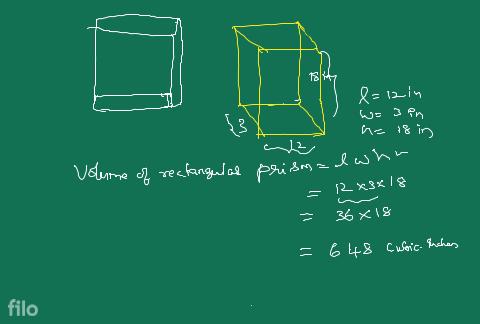 18 in
3
12
l = 12 in
w = 3 in
h = 18 in
Volume of rectangular prism = l w h
= 12 x 3 x 18
= 36 x 18
= 648 cubic inches
filo